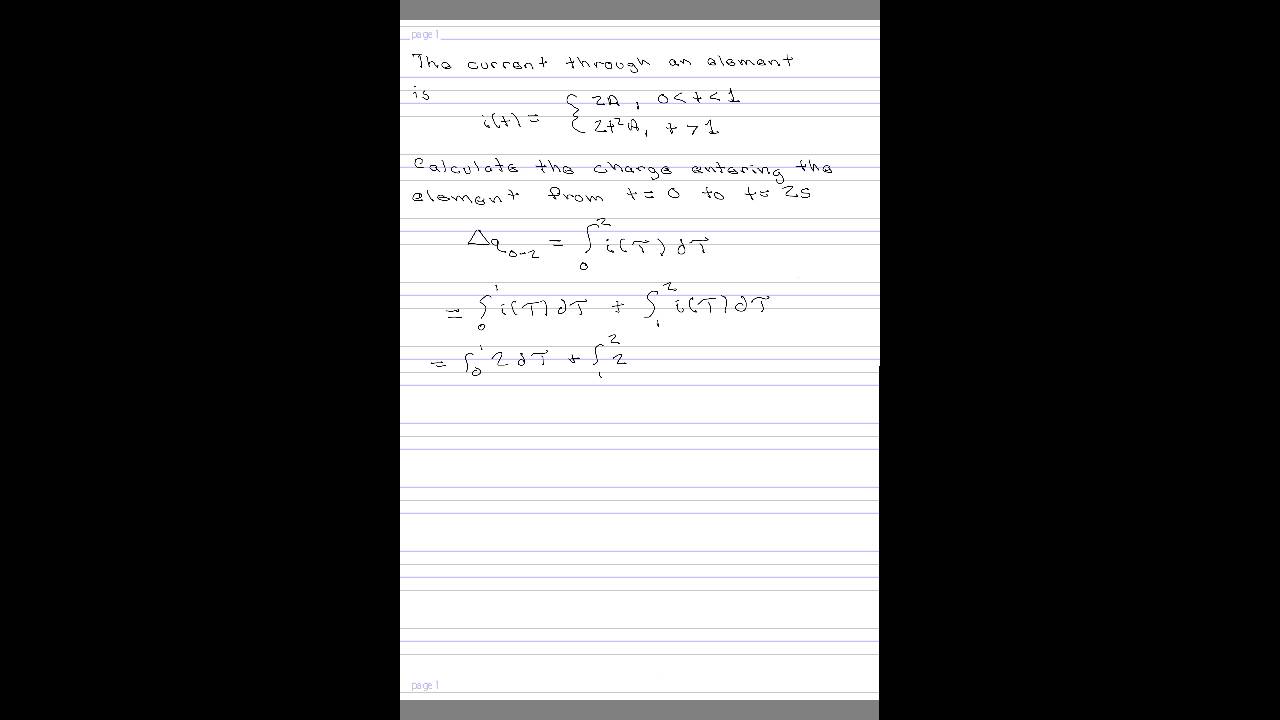 page 1
The current through an element
is
i(t) = { 2A, 0 < t < 1
2t²A, t > 1
Calculate the charge entering the
element from t = 0 to t = 2s
Δq₀₋₂ = ∫₀² i(τ) dτ
= ∫₀¹ i(τ) dτ + ∫₁² i(τ) dτ
= ∫₀¹ 2 dτ + ∫₁² 2
page 1